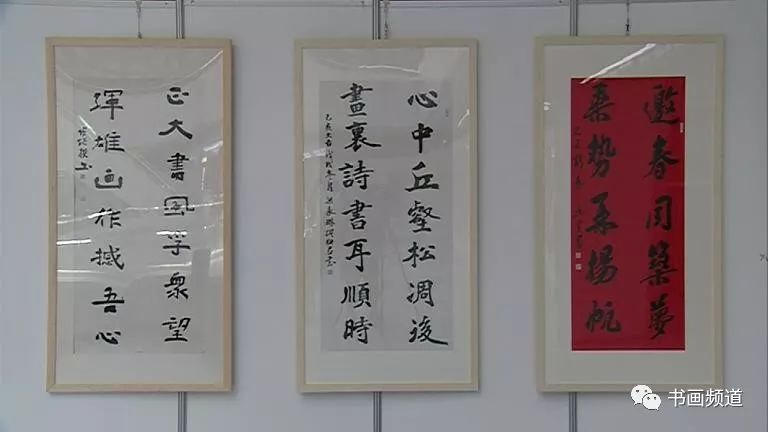 正大书风孚众望
浑雄画作撼吾心
心中丘壑松凋後
畫裏詩書耳順時
邀春同築夢
乘势再揚帆
书画频道